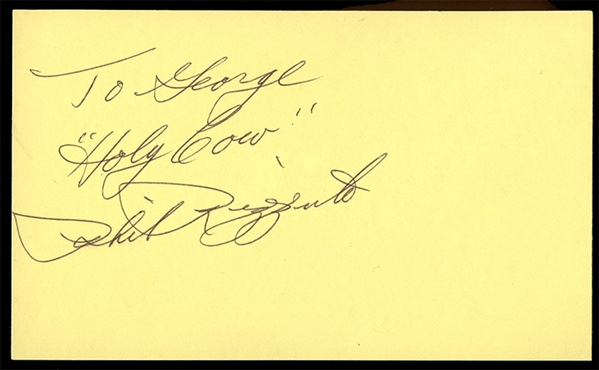 To George
"Holy Cow"
Phil Rizzuto